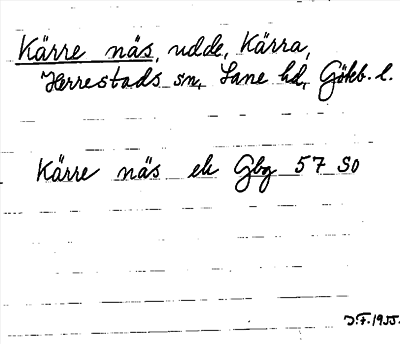 Kärre näs, udde, Kärra,
Herrestads sn, Lane hd, Göteb. l.
Kärre näs ek Gbg 57 SO
J.F. 1955.